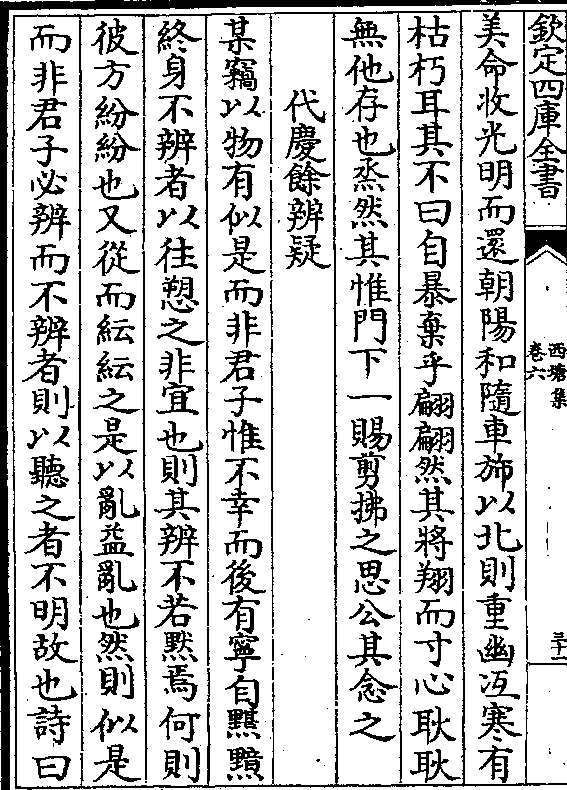 欽定四庫全書
西塘集
卷六
三十一
美命收光明而還朝陽和隨車斾以北則重幽冱寒有
枯朽耳其不曰自暴棄乎翩翩然其將翔而寸心耿耿
無他存也烝然其惟門下一賜剪拂之思公其念之
代慶餘辨疑
某竊以物有似是而非君子惟不幸而後有寧自黶黯
終身不辨者以往愬之非宜也則其辨不若默焉何則
彼方紛紛也又從而紜紜之是以亂益亂也然則似是
而非君子必辨而不辨者則以聽之者不明故也詩曰